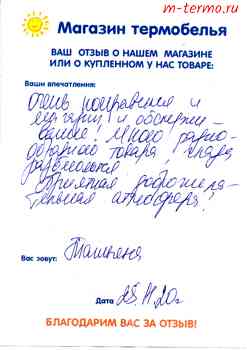 m-termo.ru
Магазин термобелья
ВАШ ОТЗЫВ О НАШЕМ МАГАЗИНЕ
ИЛИ О КУПЛЕННОМ У НАС ТОВАРЕ:
Ваши впечатления:
Очень понравился и
магазин и обслужи-
вание! Много разно-
образного товара, глаза
разбегаются!
Приятная доброжела-
тельная атмосфера!
Вас зовут: Татьяна
Дата
БЛАГОДАРИМ ВАС ЗА ОТЗЫВ!